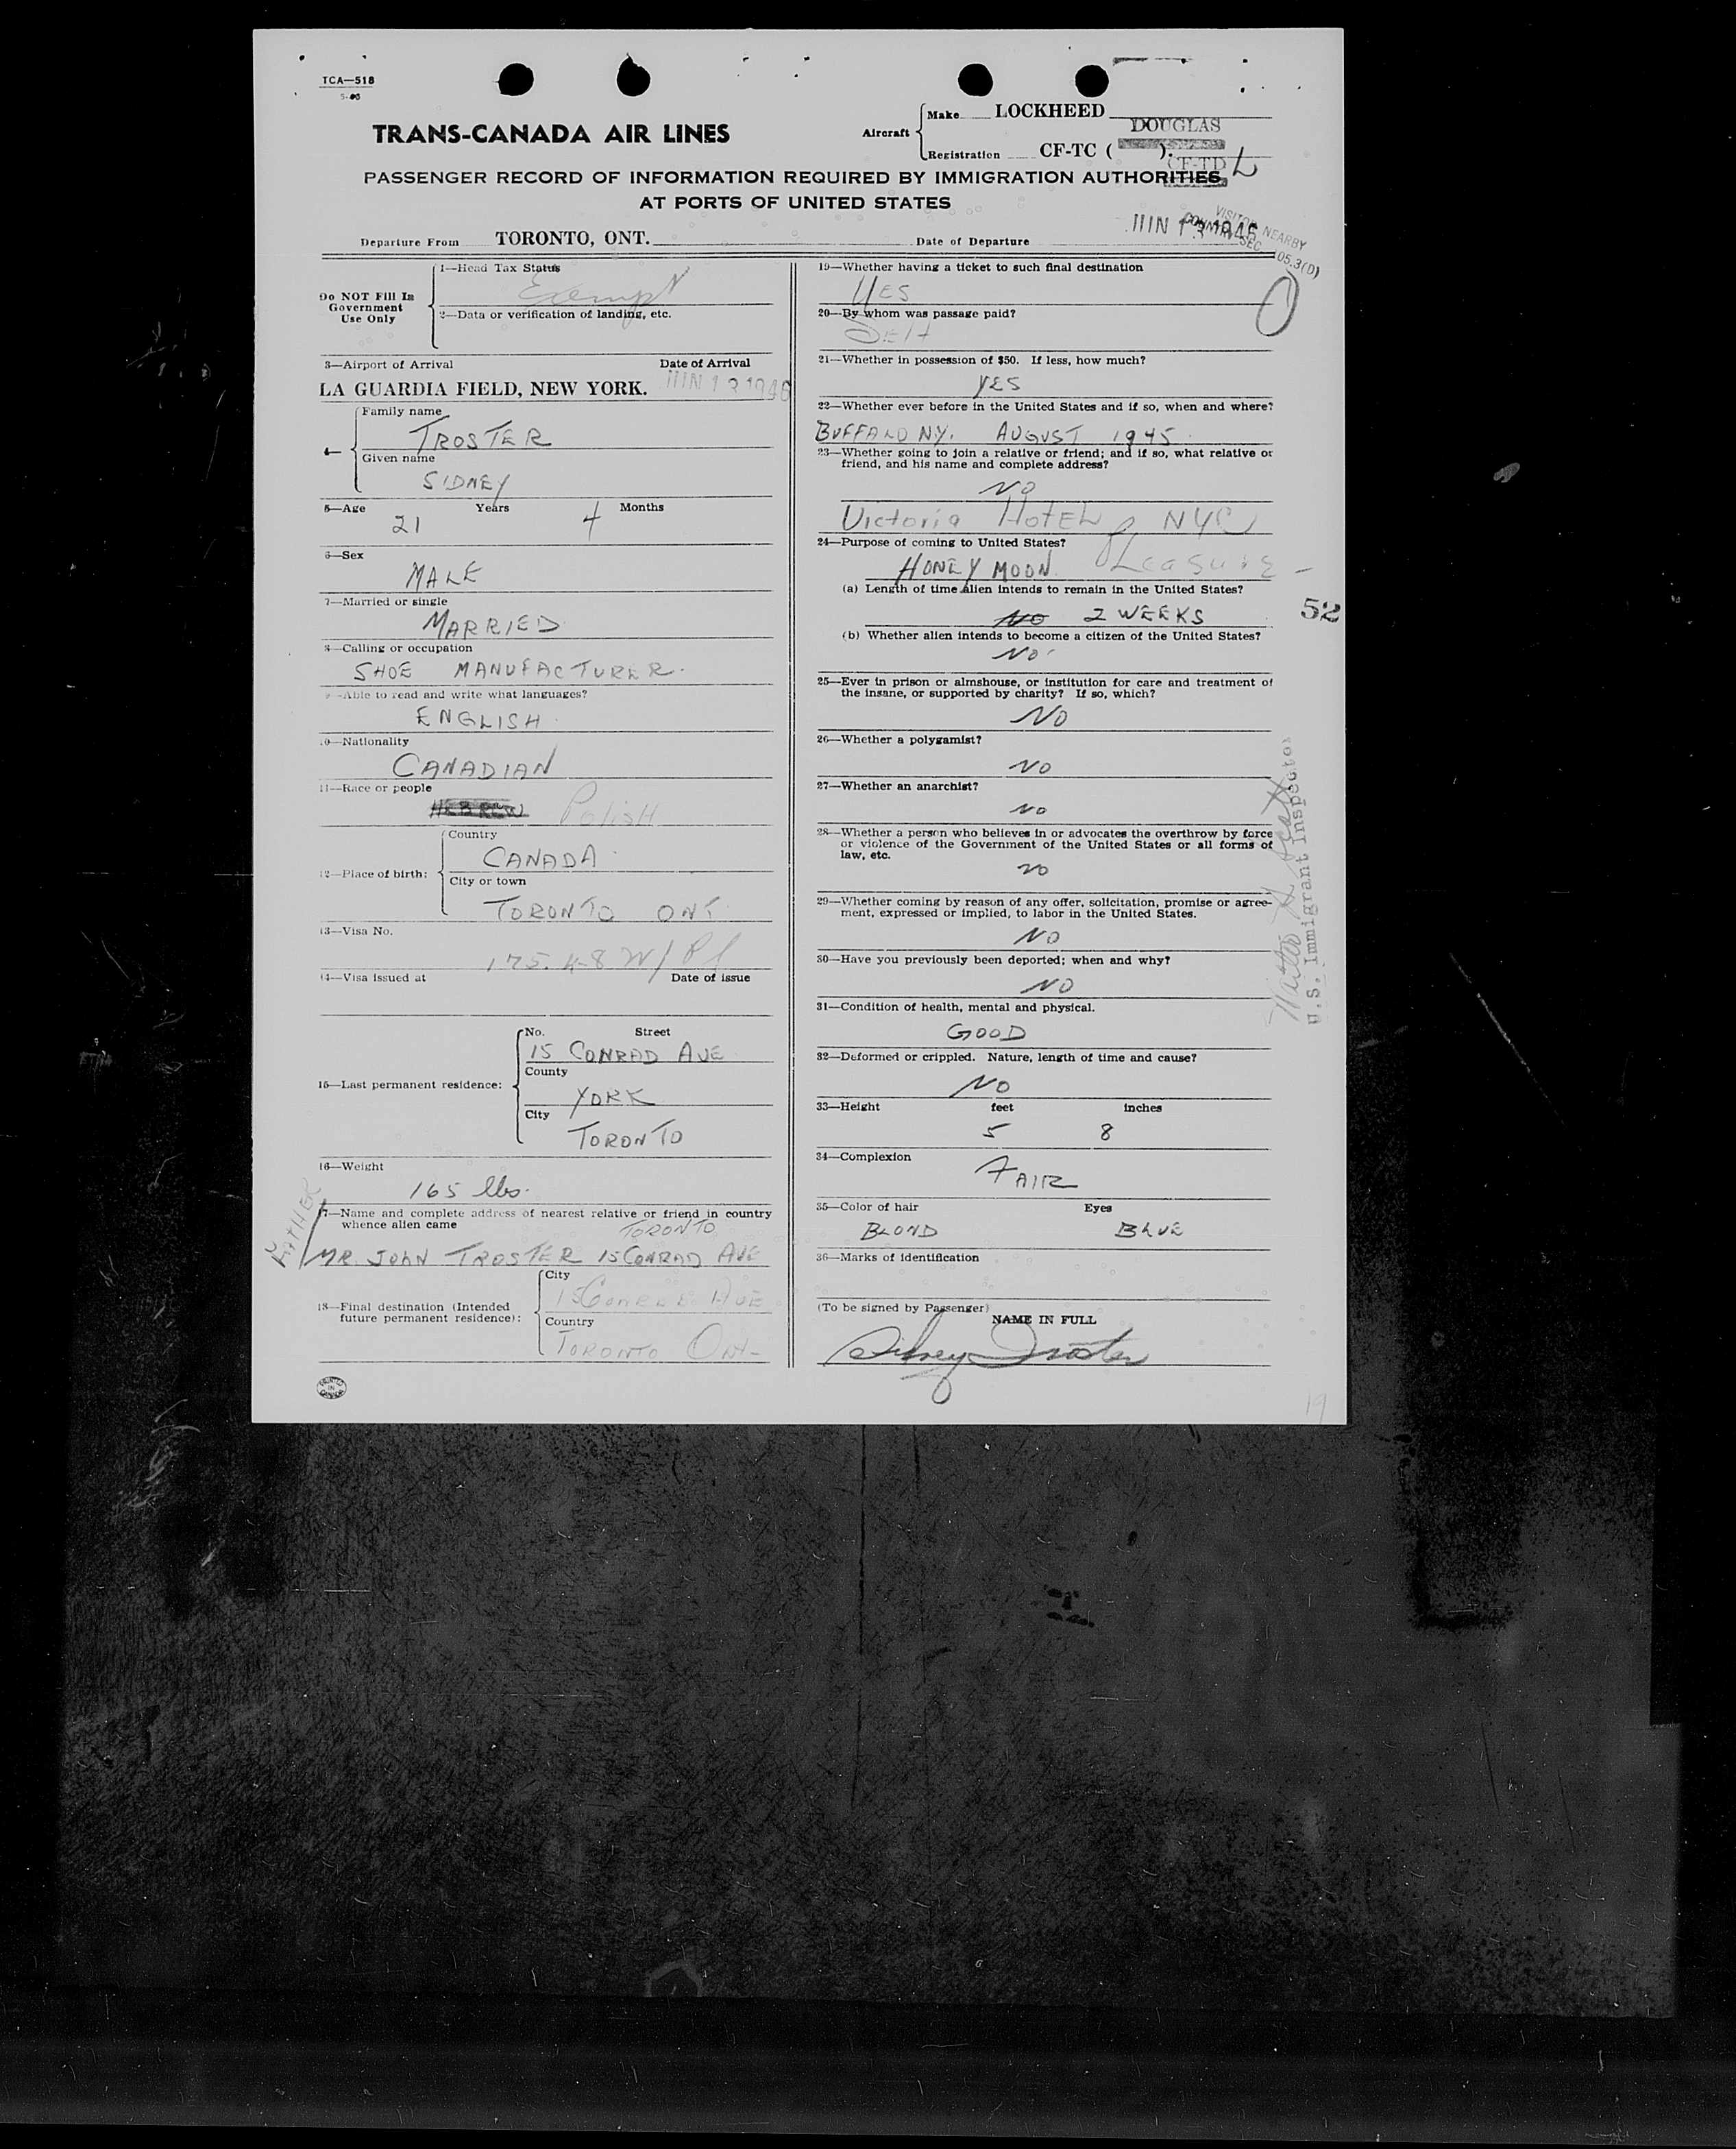 TCA—518
TRANS-CANADA AIR LINES
Aircraft
Make LOCKHEED
DOUGLAS
Registration CF-TC ( ).
CF-TD L
PASSENGER RECORD OF INFORMATION REQUIRED BY IMMIGRATION AUTHORITIES
AT PORTS OF UNITED STATES
VISITOR NEARBY
COUNTRY SEC
Departure From TORONTO, ONT. Date of Departure JUN 13 1946
Do NOT Fill In
Government
Use Only
1—Head Tax Status
Exempt
2—Data or verification of landing, etc.
3—Airport of Arrival Date of Arrival
LA GUARDIA FIELD, NEW YORK. JUN 13 1946
4—
Family name
TROSTER
Given name
SIDNEY
5—Age Years Months
21 4
6—Sex
MALE
7—Married or single
MARRIED
8—Calling or occupation
SHOE MANUFACTURER.
9—Able to read and write what languages?
ENGLISH.
10—Nationality
CANADIAN
11—Race or people
HEBREW Polish
12—Place of birth:
Country
CANADA
City or town
TORONTO ONT.
13—Visa No.
14—Visa issued at Date of issue
15—Last permanent residence:
No. Street
15 CONRAD AVE
County
YORK
City
TORONTO
16—Weight
165 lbs.
17—Name and complete address of nearest relative or friend in country
whence alien came
TORONTO
FATHER
MR. JOHN TROSTER 15 CONRAD AVE
18—Final destination (Intended
future permanent residence):
City
15 Conrad AVE
Country
TORONTO ONT-
19—Whether having a ticket to such final destination
YES
20—By whom was passage paid?
Self
21—Whether in possession of $50. If less, how much?
YES
22—Whether ever before in the United States and if so, when and where?
BUFFALO N.Y. AUGUST 1945.
23—Whether going to join a relative or friend; and if so, what relative or
friend, and his name and complete address?
NO
Victoria HOTEL NYC
24—Purpose of coming to United States?
HONEY MOON. PLeasure -
(a) Length of time alien intends to remain in the United States?
NO 2 WEEKS
52
(b) Whether alien intends to become a citizen of the United States?
NO
25—Ever in prison or almshouse, or institution for care and treatment of
the insane, or supported by charity? If so, which?
NO
26—Whether a polygamist?
NO
27—Whether an anarchist?
NO
28—Whether a person who believes in or advocates the overthrow by force
or violence of the Government of the United States or all forms of
law, etc.
NO
29—Whether coming by reason of any offer, solicitation, promise or agree-
ment, expressed or implied, to labor in the United States.
NO
30—Have you previously been deported; when and why?
NO
31—Condition of health, mental and physical.
GOOD
32—Deformed or crippled. Nature, length of time and cause?
NO
33—Height feet inches
5 8
34—Complexion
FAIR
35—Color of hair Eyes
BLOND BLUE
36—Marks of identification
(To be signed by Passenger)
NAME IN FULL
Sidney Troster
U.S. Immigrant Inspector
19